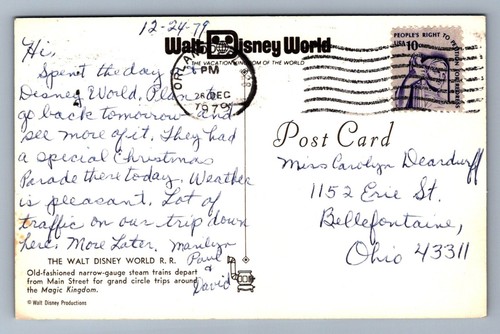 12-24-79
Walt Disney World
THE VACATION KINGDOM OF THE WORLD
Hi,
Spent the day at
Disney World, Plan to
go back tomorrow and
see more of it. They had
a special Christmas
Parade there today. Weather
is pleasant. Lot of
traffic on our trip down
here. More Later. Marilyn
Paul
&
David
THE WALT DISNEY WORLD R.R.
Old-fashioned narrow-gauge steam trains depart
from Main Street for grand circle trips around
the Magic Kingdom.
© Walt Disney Productions
PM
26 DEC
1979
PEOPLE'S RIGHT TO
USA 10c
Post Card
Miss Carolyn Deardurff
1152 Erie St.
Bellefontaine,
Ohio 43311